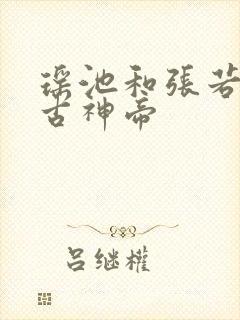 瑶池和張若
古神帝
呂继權